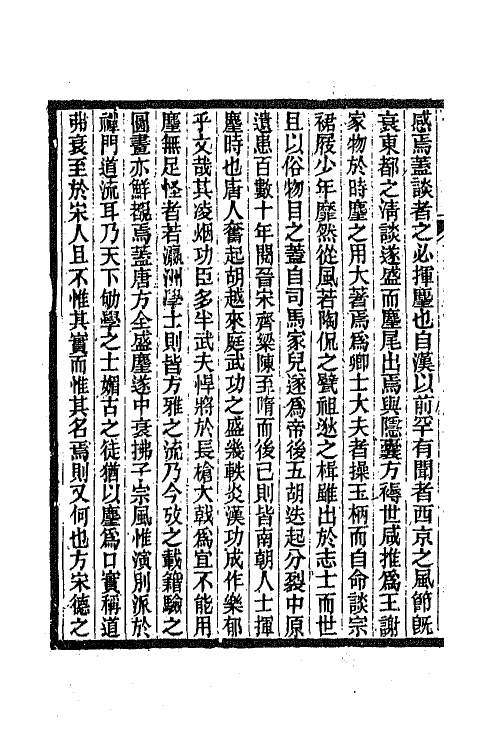 感焉蓋談者之必揮麈也自漢以前罕有聞者西京之風節旣
衰東都之淸談遂盛而麈尾出焉與隱囊方褥世咸推爲王謝
家物於時麈之用大著焉爲卿士大夫者操玉柄而自命談宗
裙屐少年靡然從風若陶侃之甓祖逖之楫雖出於志士而世
且以俗物目之蓋自司馬家兒遂爲帝後五胡迭起分裂中原
遺患百數十年閱晉宋齊梁陳至隋而後已則皆南朝人士揮
麈時也唐人奮起胡越來庭武功之盛幾軼炎漢功成作樂郁
乎文哉其凌烟功臣多半武夫悍將於長槍大戟爲宜不能用
麈無足怪者若瀛洲學士則皆方雅之流乃今攷之載籍驗之
圖畫亦鮮覩焉蓋唐方全盛麈遂中衰拂子宗風惟演別派於
禪門道流耳乃天下劬學之士媚古之徒猶以麈爲口實稱道
弗衰至於宋人且不惟其實而惟其名焉則又何也方宋德之